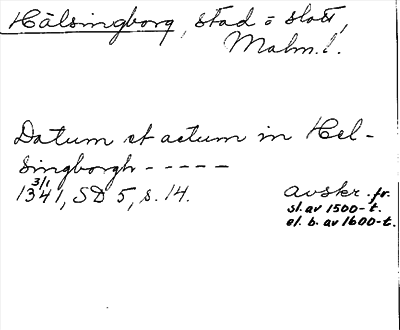 Hälsingborg, stad o slott,
Malm.l.
Datum et actum in Hel-
singborgh - - - - -
3/1
1341, SD 5, s. 14.
avskr. fr.
sl. av 1500-t.
el. b. av 1600-t.